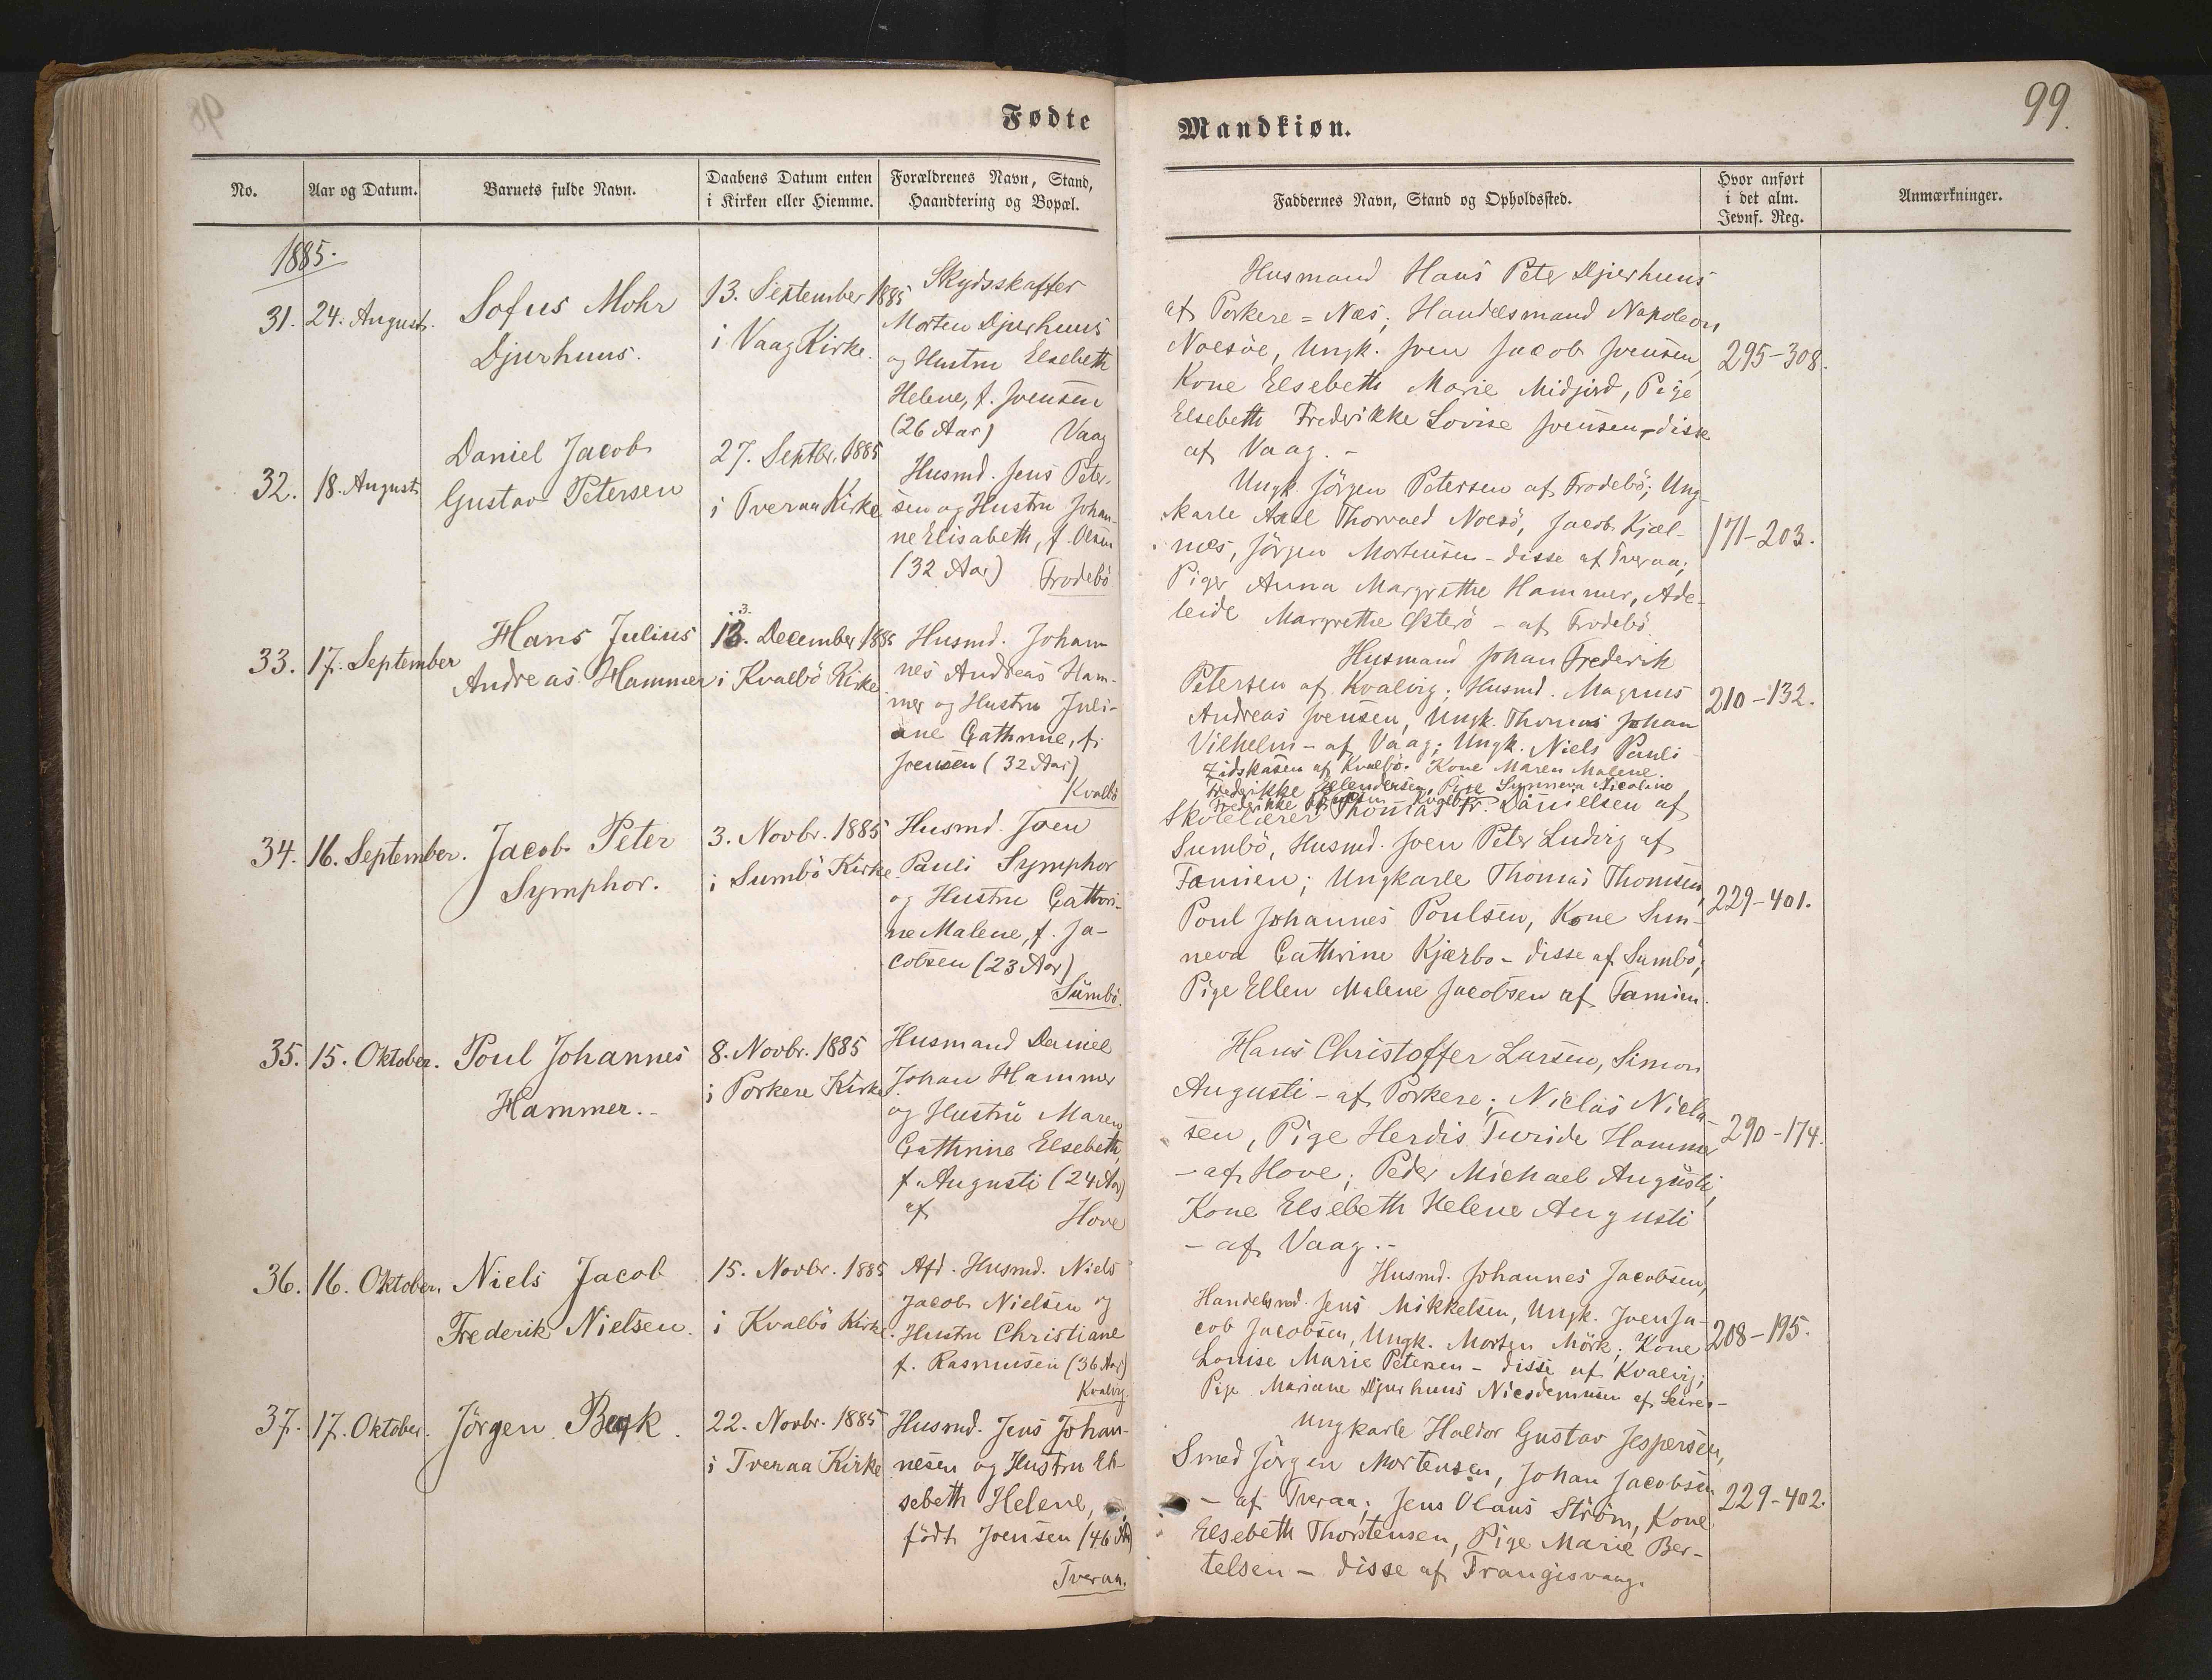 Fødte
Mandkiøn.
99.
No.
Aar og Datum.
Barnets fulde Navn.
Daabens Datum enten
i Kirken eller Hiemme.
Forældrenes Navn, Stand,
Haandtering og Bopæl.
Faddernes Navn, Stand og Opholdssted.
Hvor anført
i det alm.
Jevnf. Reg.
Anmærkninger.
1885.
31.
24. August.
Sofus Mohr
Djurhuus.
13. September 1885
i Vaag Kirke.
Skydsskaffer
Morten Djurhuus
og Hustru Elsebeth
Helene, f. Joensen
(26 Aar) Vaag
Husmand Hans Peter Djurhuus
af Porkere-Næs; Handelsmand Napoleon
Noesöe, Ungk. Joen Jacob Joensen,
Kone Elsebeth Marie Midjord, Pige
Elsebeth Frederikke Lovise Joensen, disse
af Vaag. -
295-308.
32.
18. August
Daniel Jacob
Gustav Petersen
27. Septbr. 1885
i Tveraa Kirke
Husmd. Jens Peter-
sen og Hustru Johan-
ne Elisabeth, f. Olsen
(32 Aar) Frodebö
Ungk. Jörgen Petersen af Frodebö; Ung-
karle Axel Thorvald Noesö, Jacob Kjæl-
næs, Jörgen Mortensen - disse af Tveraa;
Piger Anna Margrethe Hammer, Ade-
leide Margrethe Österö - af Frodebö.
171-203.
33.
17. September
Hans Julius
Andreas Hammer
13. December 1885
i Kvalbö Kirke
Husmd. Johan-
nes Andreas Ham-
mer og Hustru Juli-
ane Cathrine, f.
Joensen (32 Aar)
Kvalbö
Husmand Johan Frederik
Petersen af Kvalvig; Husmd. Magnus
Andreas Joensen, Ungk. Thomas Johan
Vilhelm - af Vaag; Ungk. Niels Pauli
af Kvalbö. Kone Maren Malene
Frederikke Pige Sunneva Nicoline
Frederikke Kvalbö
210-132.
34.
16. September.
Jacob Peter
Symphor.
3. Novbr. 1885
i Sumbö Kirke.
Husmd. Joen
Pauli Symphor
og Hustru Cathri-
ne Malene, f. Ja-
cobsen (23 Aar)
Sumbö.
Skolelærer Thomas Fr. Danielsen af
Sumbö, Husmd. Joen Peter Ludvig af
Famien; Ungkarle Thomas Thomsen,
Poul Johannes Poulsen, Kone Sun-
neva Cathrine Kjærbo - disse af Sumbö;
Pige Ellen Malene Jacobsen af Famien.
229-401.
35.
15. Oktober.
Poul Johannes
Hammer. -
8. Novbr. 1885
i Porkere Kirke
Husmand Daniel
Johan Hammer
og Hustru Maren
Cathrine Elsebeth,
f. Augusti (24 Aar)
af Hove
Hans Christoffer Larsen, Simon
Augusti - af Porkere; Niclas Niela-
sen, Pige Herdis Turide Hammer
- af Hove; Peder Michael Augusti,
Kone Elsebeth Helene Augusti
- af Vaag. -
290-174.
36.
16. Oktober.
Niels Jacob
Frederik Nielsen.
15. Novbr. 1885
i Kvalbö Kirke.
Afd. Husmd. Niels
Jacob Nielsen og
Hustru Christiane
f. Rasmusen (36 Aar)
Kvalvig
Husmd. Johannes Jacobsen,
Handelsmd. Jens Mikkelsen, Ungk. Joen Ja-
cob Jacobsen, Ungk. Morten Mörk; Kone
Louise Marie Petersen - disse af Kvalvig;
Pige Mariane Djurhuus Nicodemusen af
208-195.
37.
17. Oktober.
Jörgen
22. Novbr. 1885
i Tveraa Kirke
Husmd. Jens Johan-
nesen og Hustru El-
sebeth Helene,
född Joensen (46 Aar)
Tveraa.
Ungkarle Haldor Gustav Jespersen,
Smed Jörgen Mortensen, Johan Jacobsen
- af Tveraa; Jens Olaus Ström, Kone
Elsebeth Thorstensen, Pige Marie Ber-
telsen - disse af Trangisvaag.
229-402.